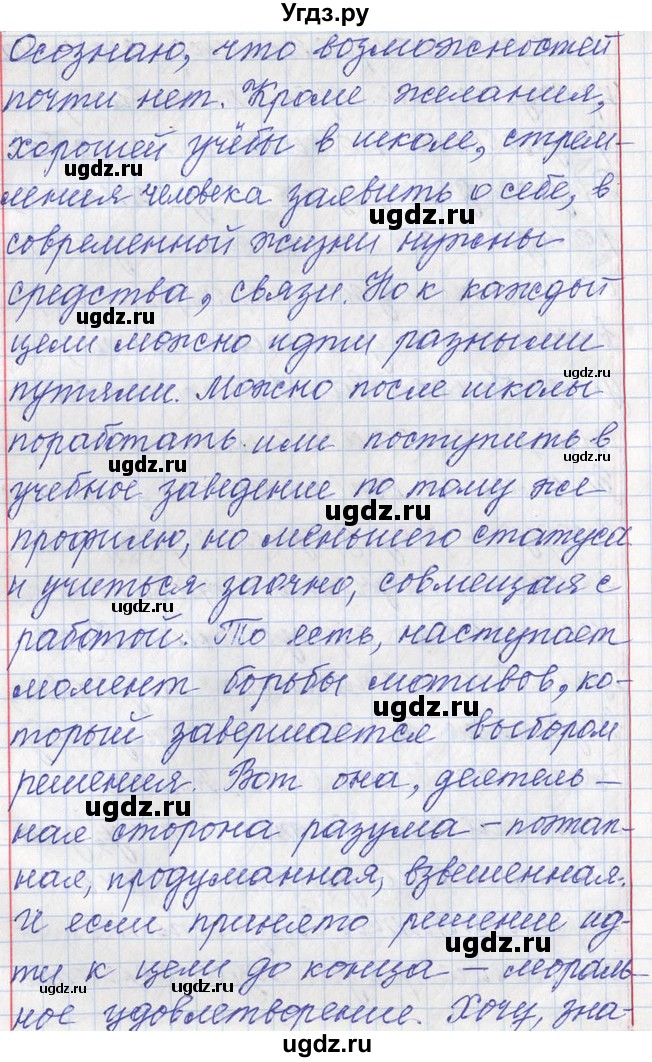 Угдз.ру
Осознаю, что возможностей
почти нет. Кроме желания,
хорошей учёбы в школе, стрем-
ugdz.ru
ления человека заявить о себе, в
ugdz.ru
современной жизни нужны
средства, связи. Но к каждой
ugdz.ru
цели можно идти разными
ugdz.ru
путями. Можно после школы
поработать или поступить в
ugdz.ru
ugdz.ru
учебное заведение по тому же
ugdz.ru
профилю, но меньшего статуса
и учиться заочно, совмещая с
ugdz.ru
работой. То есть, наступает
момент борьбы мотивов, ко-
ugdz.ru
торый завершается выбором
решения. Вот она, деятель-
ugdz.ru
ная сторона разума – поэтап-
ная, продуманная, взвешенная.
И если принято решение ид-
ти к цели до конца – мораль-
ugdz.ru
ugdz.ru
ное удовлетворение. Хочу, зна-
ugdz.ru